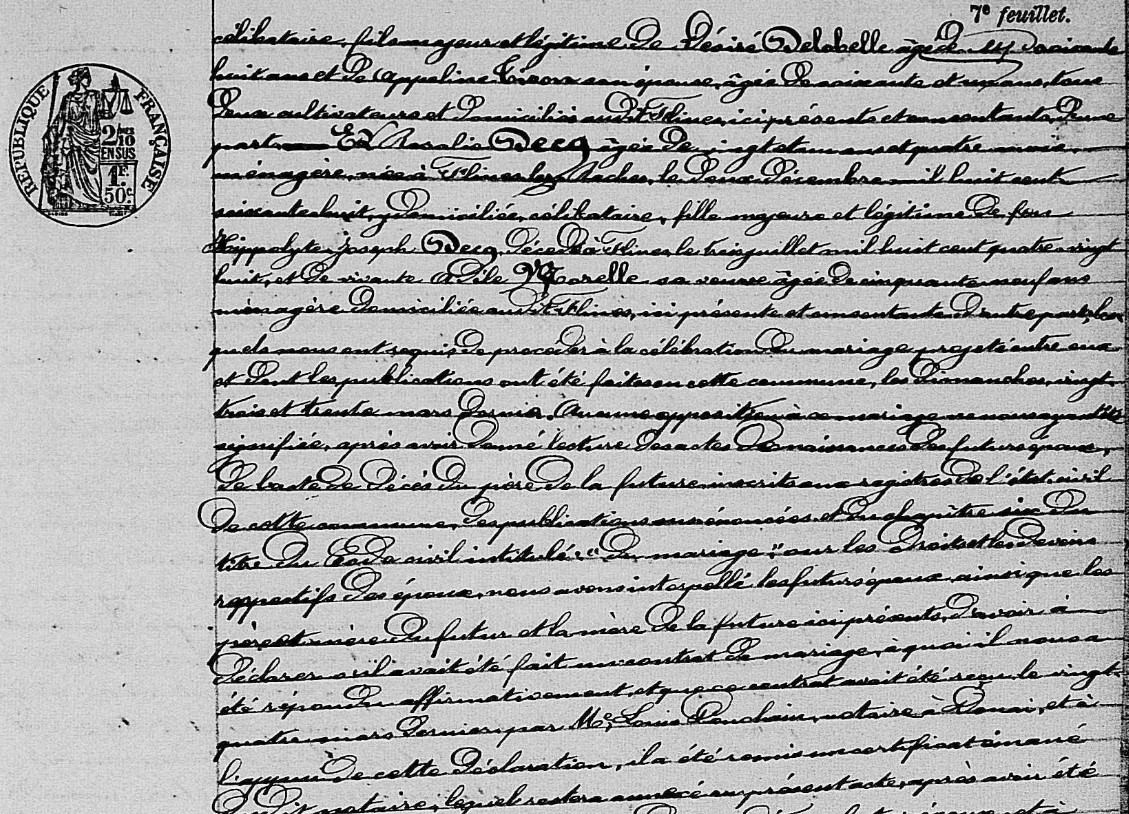 7e feuillet.
célibataire, fils majeur et légitime de Désiré Delabelle âgé de soixante
huit ans et de Appoline son épouse, âgée de soixante et un ans, tous
deux cultivateurs et domiciliés audit Flines, ici présents et consentants, d'une
part, Et Rosalie Decq âgée de vingt et un ans et quatre mois,
ménagère, née à Flines lez Raches, le deux décembre mil huit cent
soixante huit, y domiciliée, célibataire, fille majeure et légitime de feu
Hippolyte Joseph Decq, décédé à Flines, le juillet mil huit cent quatre-vingt
huit, et de vivante Adèle sa veuve âgée de cinquante neuf ans
ménagère domiciliée audit Flines, ici présente et consentante d'autre part, les
quels nous ont requis de procéder à la célébration du mariage projeté entre eux
et dont les publications ont été faites en cette commune, les dimanches, vingt
trois et trente mars dernier. Aucune opposition à ce mariage ne nous ayant été
signifiée, après avoir donné lecture des actes de naissances des futurs époux,
de l'acte de décès du père de la future inscrits aux registres de l'état civil
de cette commune, des publications susénoncées, et du chapitre six du
titre du Code civil intitulé : "Du mariage", sur les droits et les devoirs
respectifs des époux, nous avons interpellé les futurs époux, ainsi que les
père et mère du futur et la mère de la future ici présents, d'avoir à
déclarer s'il avait été fait un contrat de mariage, à quoi il nous a
été répondu affirmativement, et que ce contrat avait été reçu le vingt-
quatre mars dernier, par Me Louis notaire à Douai, et à
l'appui de cette déclaration, il a été remis un certificat émané
dudit notaire, lequel restera annexé au présent acte, après avoir été
RÉPUBLIQUE FRANÇAISE
2/10
EN SUS
1F
50c.